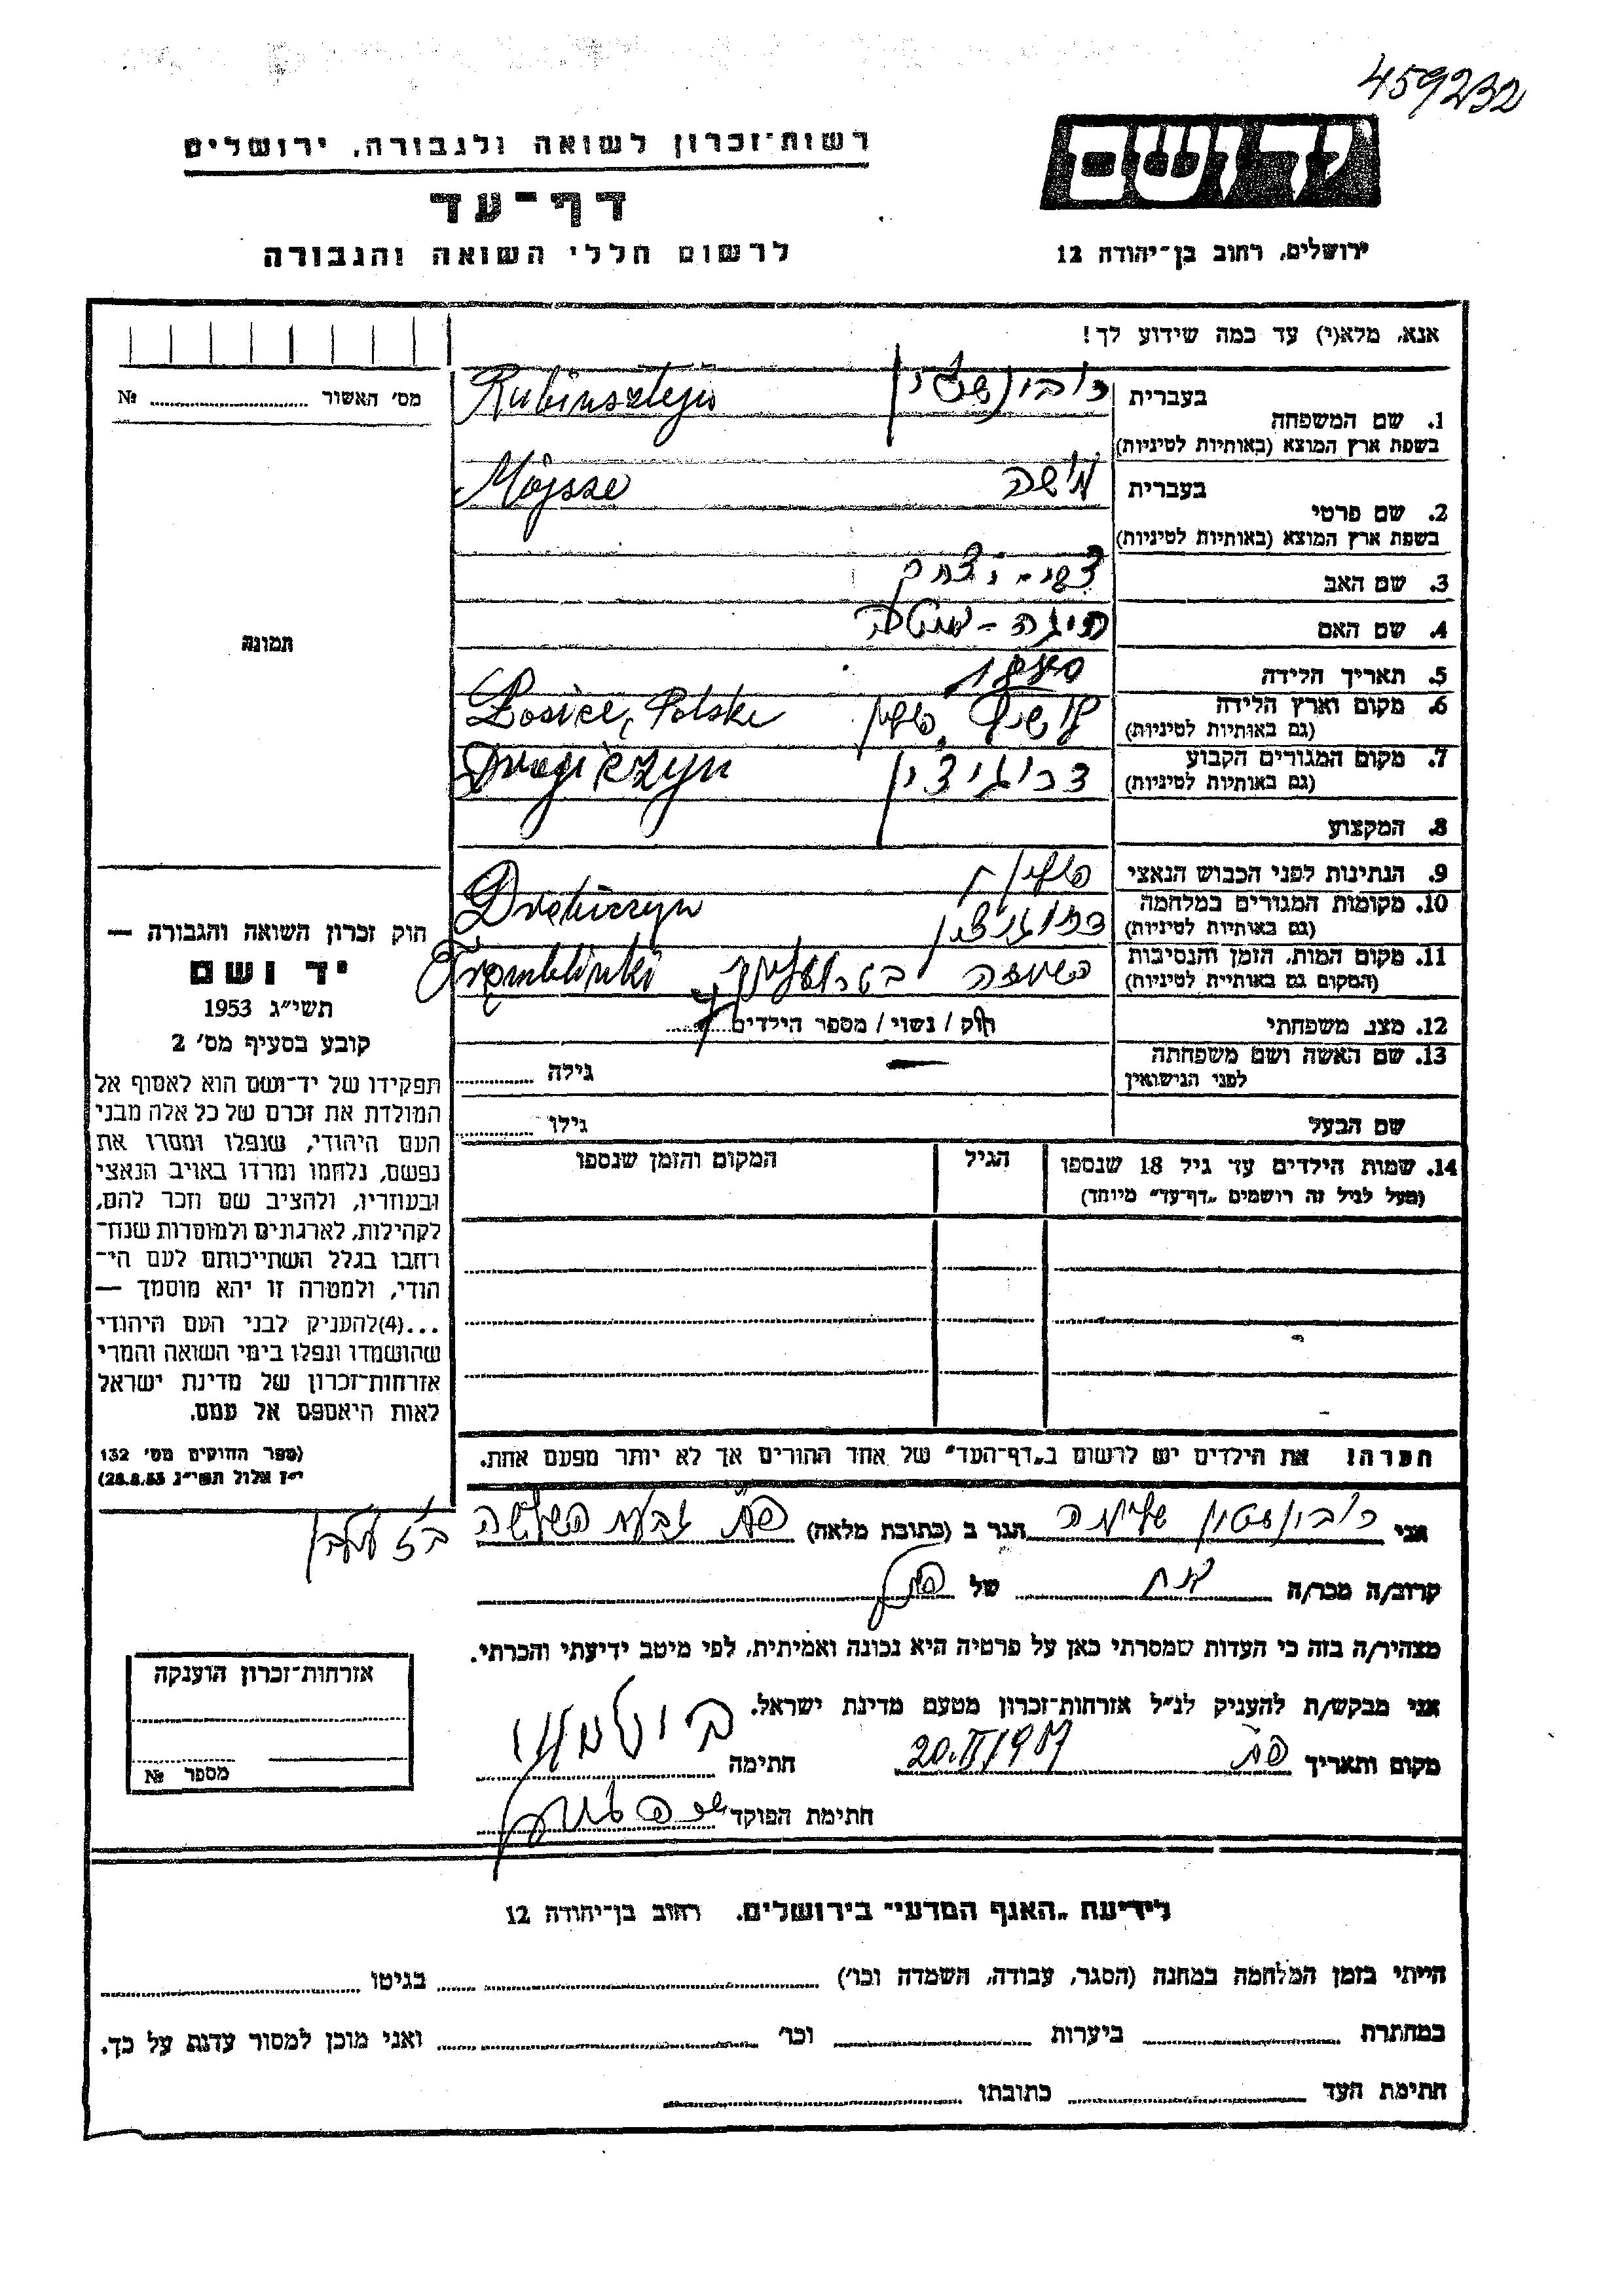 459232
יד ושם
רשות־זכרון לשואה ולגבורה, ירושלים
דף־עד
לרשום חללי השואה והגבורה
ירושלים, רחוב בן־יהודה 12
אנא, מלא(י) עד כמה שידוע לך!
מס' האשור № 
1. שם המשפחה בעברית רובינשטיין Rubinsztejn
בשפת ארץ המוצא (באותיות לטיניות)
2. שם פרטי בעברית מישה Mojsze
בשפת ארץ המוצא (באותיות לטיניות)
3. שם האב יצחק
4. שם האם
5. תאריך הלידה
6. מקום וארץ הלידה פולין Łosice, Polska
(גם באותיות לטיניות)
7. מקום המגורים הקבוע דרוגיצין Drogiczyn
(גם באותיות לטיניות)
8. המקצוע
9. הנתינות לפני הכבוש הנאצי
10. מקומות המגורים במלחמה דרוגיצין
(גם באותיות לטיניות)
11. מקום המות, הזמן והנסיבות Tremblinki
(המקום גם באותיות לטיניות)
12. מצב משפחתי רוק / נשוי / מספר הילדים
13. שם האשה ושם משפחתה לפני הנישואין — גילה
שם הבעל גילו
תמונה
חוק זכרון השואה והגבורה —
יד ושם
תשי״ג 1953
קובע בסעיף מס' 2
תפקידו של יד־ושם הוא לאסוף אל
המולדת את זכרם של כל אלה מבני
העם היהודי, שנפלו ומסרו את
נפשם, נלחמו ומרדו באויב הנאצי
ובעוזריו, ולהציב שם וזכר להם,
לקהילות, לארגונים ולמוסדות שנח־
רחבו בגלל השתייכותם לעם הי־
הודי, ולמטרה זו יהא מוסמך —
...(4)להעניק לבני העם היהודי
שהושמדו ונפלו בימי השואה והמרי
אזרחות־זכרון של מדינת ישראל
לאות היאספם אל עמם.
(ספר החוקים מס' 132
י״ז אלול תשי״ג 28.8.53)
14. שמות הילדים עד גיל 18 שנספו הגיל המקום והזמן שנספו
(מעל לגיל זה רושמים „דף־עד״ מיוחד)
הערה! את הילדים יש לרשום ב„דף־העד״ של אחד ההורים אך לא יותר מפעם אחת.
אני רובינשטיין הגר ב (כתובת מלאה) גבעת השלושה
קרוב/ה מכר/ה אח של
מצהיר/ה בזה כי העדות שמסרתי כאן על פרטיה היא נכונה ואמיתית, לפי מיטב ידיעתי והכרתי.
אני מבקש/ת להעניק לנ״ל אזרחות־זכרון מטעם מדינת ישראל.
מקום ותאריך חתימה
חתימת הפוקד
אזרחות־זכרון הוענקה
מספר №
לידיעת „האגף המדעי״ בירושלים, רחוב בן־יהודה 12
הייתי בזמן המלחמה במחנה (הסגר, עבודה, השמדה וכו') בגיטו
במחתרת ביערות וכו' ואני מוכן למסור עדות על כך.
חתימת העד כתובתו